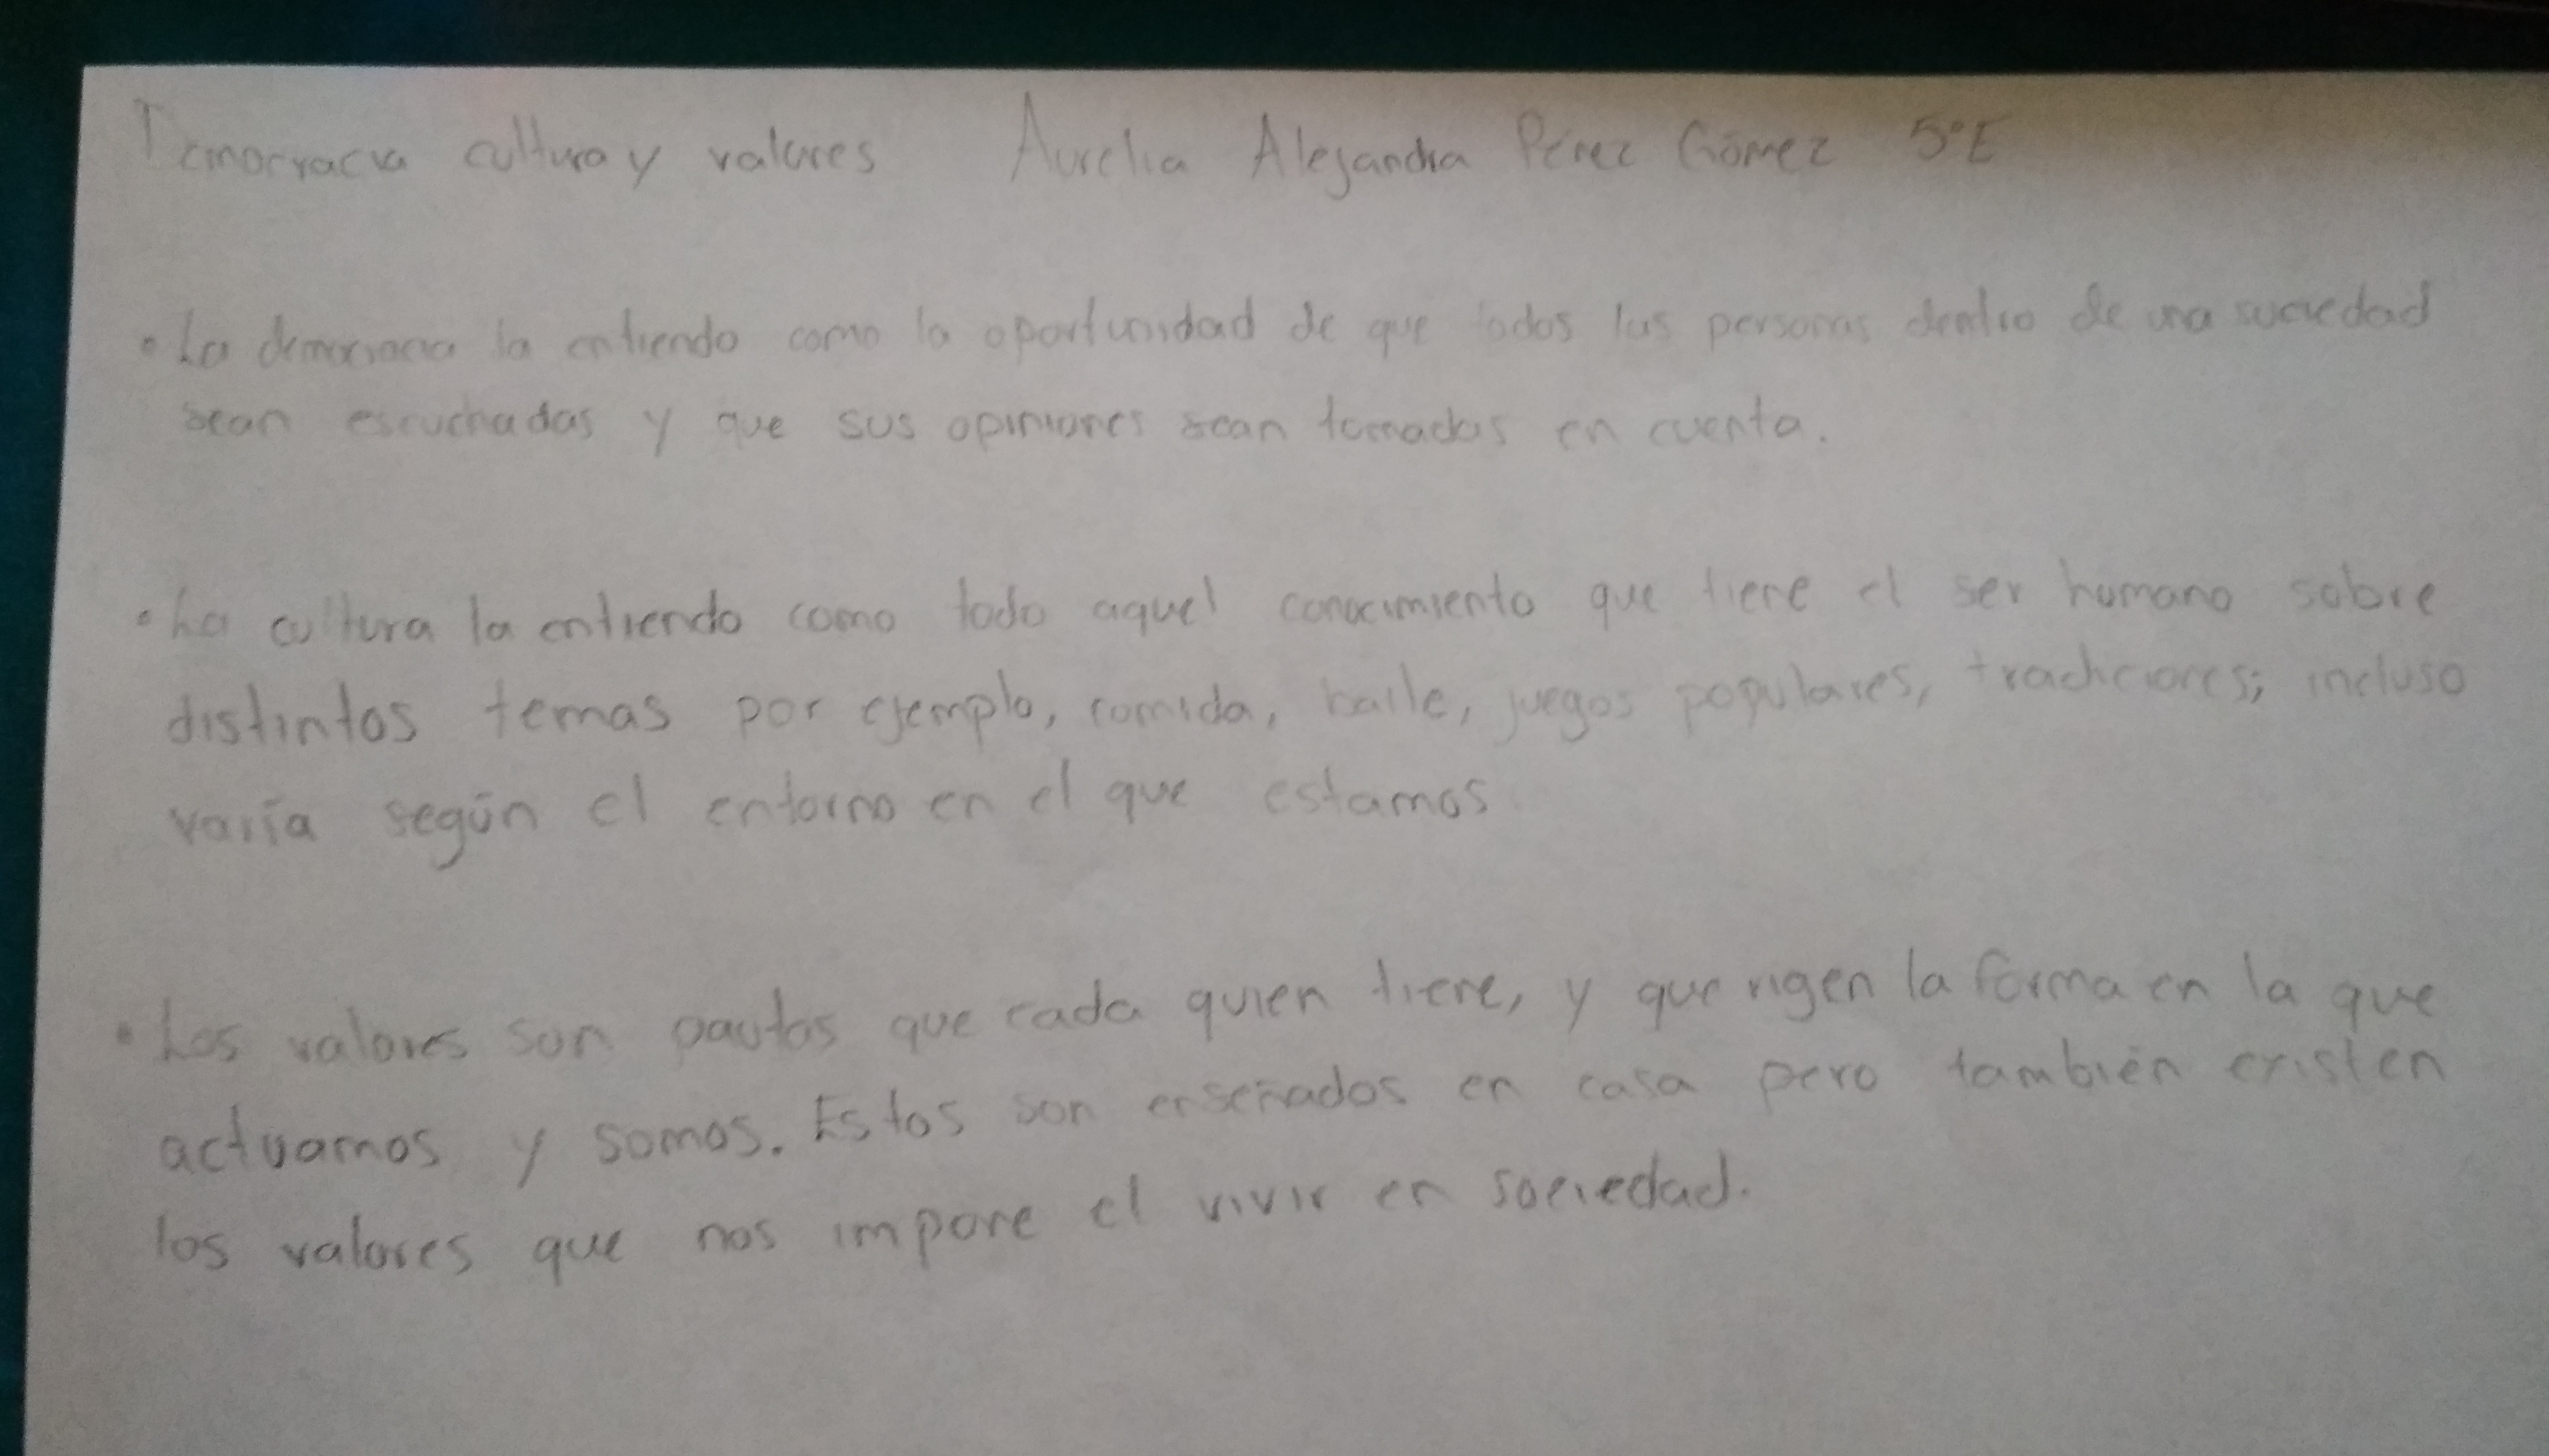 Democracia cultura y valores Aurelia Alejandra Pérez Gómez 5°E
• La democracia la entiendo como la oportunidad de que todas las personas dentro de una sociedad
sean escuchadas y que sus opiniones sean tomadas en cuenta.
• La cultura la entiendo como todo aquel conocimiento que tiene el ser humano sobre
distintos temas por ejemplo, comida, baile, juegos populares, tradiciones; incluso
varía según el entorno en el que estamos.
• Los valores son pautas que cada quien tiene, y que rigen la forma en la que
actuamos y somos. Estos son enseñados en casa pero también existen
los valores que nos impone el vivir en sociedad.